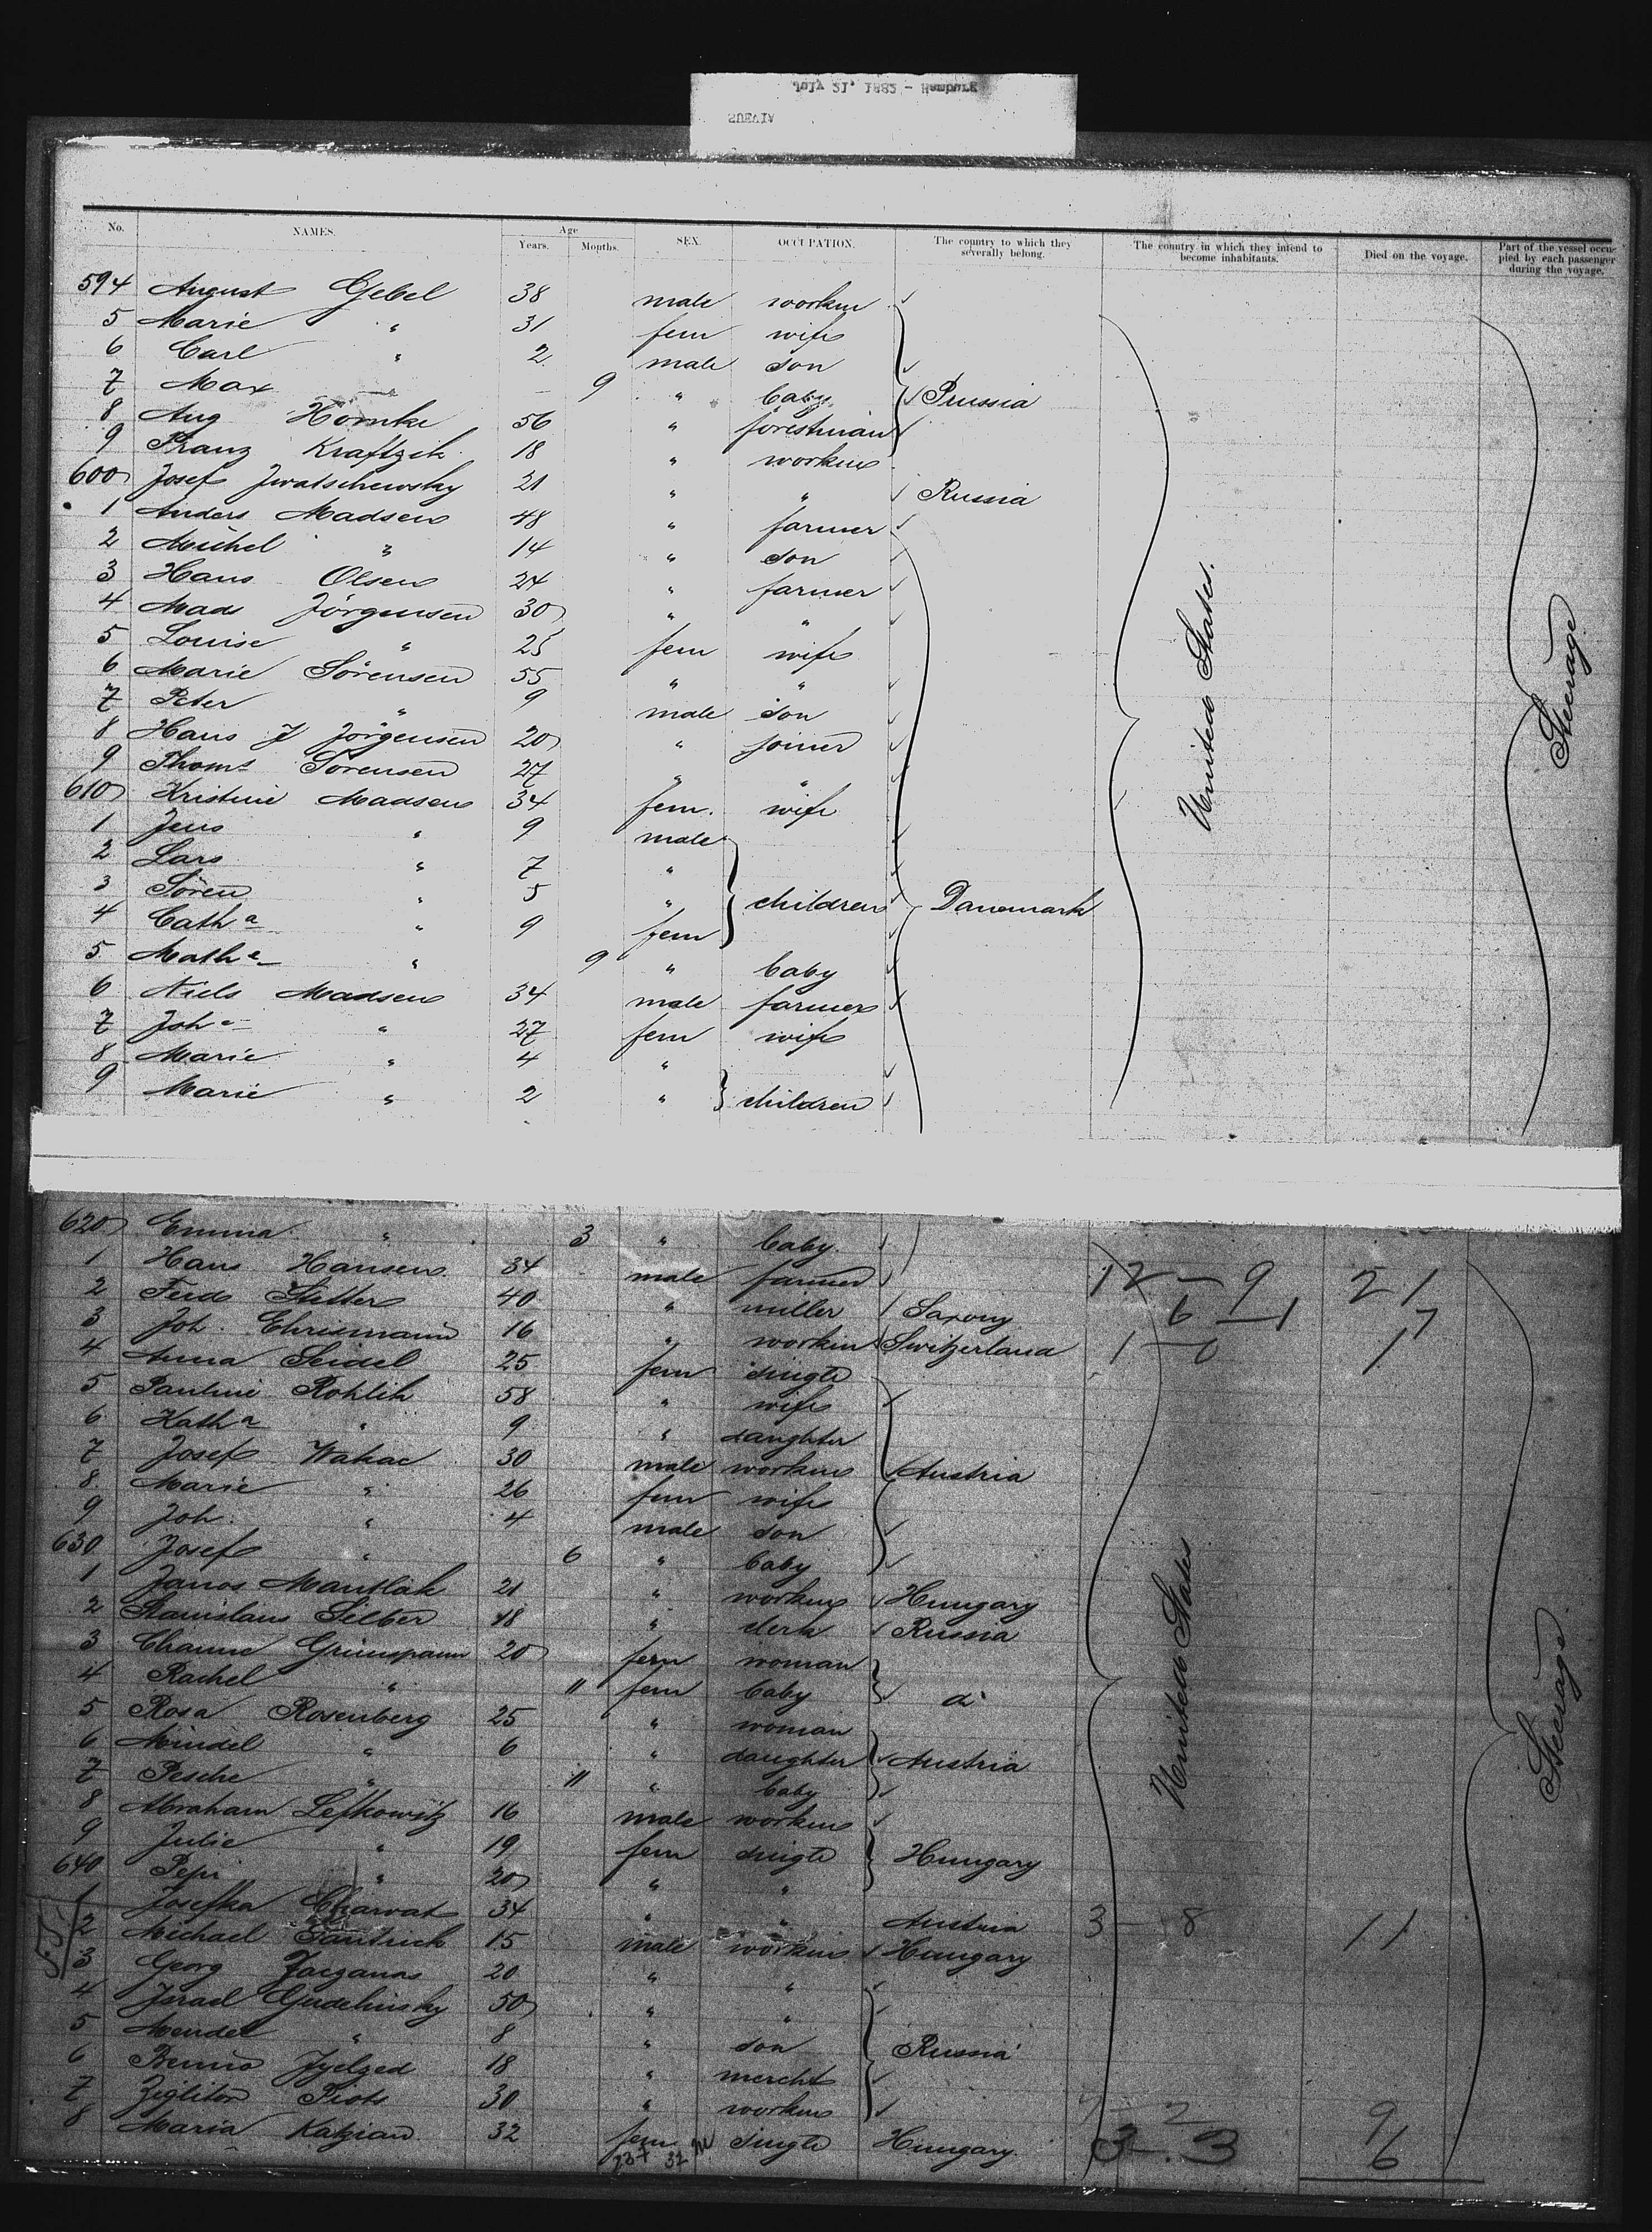 July 21, 1882 - Hamburg
SUEVIA
No. NAMES. Age Years. Months. SEX. OCCUPATION. The country to which they severally belong. The country in which they intend to become inhabitants. Died on the voyage. Part of the vessel occupied by each passenger during the voyage.
594 August Gebel 38 male worker
5 Marie " 31 fem wife
6 Carl " 2 male son
7 Max " 9 " baby Prussia
8 Aug Hornke 56 " forestman
9 Franz Kraftzik 18 " worker
600 Josef Jwatschewsky 21 " " Russia
1 Anders Madsen 48 " farmer
2 Michel " 14 " son
3 Hans Olsen 24 " farmer
4 Mads Jörgensen 30 " "
5 Louise " 25 fem wife
6 Marie Sörensen 55 " "
7 Peter " 9 male son
8 Hans J Jörgensen 20 " joiner
9 Thoms Sörensen 27 " "
610 Kristine Madsen 34 fem. wife
1 Jens " 9 male
2 Lars " 7 "
3 Sören " 5 " children Danemark
4 Catha " 9 fem
5 Matha " 9 " baby
6 Niels Madsen 34 male farmer
7 Joha " 27 fem wife
8 Marie " 4 "
9 Marie " 2 " children
United States.
Steerage
620 Emma " 3 " baby
1 Hans Hansen 34 male farmer 12 - 9 21
2 Ferd 40 " miller Saxony 6 - 1 7
3 Joh. Ehrismann 16 " worker Switzerland 1 - 0 1
4 Anna Seidel 25 fem single
5 Pauline Rohlik 58 " wife
6 Katha " 9 " daughter
7 Josef Wahac 30 male worker Austria
8 Marie " 26 fem wife
9 Joh. " 4 male son
630 Josef " 6 " baby
1 Janos Mantlak 21 " worker Hungary
2 Stanislaus Silber 18 " clerk Russia
3 Grünspann 20 fem woman
4 Rachel " 11 fem baby do
5 Rosa Rosenberg 25 " woman
6 Mindel " 6 " daughter Austria
7 Pesche " 11 " baby
8 Abraham Lefkowitz 16 male worker
9 Julie " 19 fem single Hungary
640 Pepi " 20 " "
1 Josefka Charvat 34 " " Austria 3 - 8 11
2 Michael 15 male worker Hungary
3 Georg 20 " "
4 Israel Gudelinsky 50 " "
5 Mendel " 8 " son Russia
6 Benno 18 " mercht
7 Piotr 30 " worker 2 9
8 Maria Katzian 32 fem single Hungary 3 - 3 6
United States
Steerage